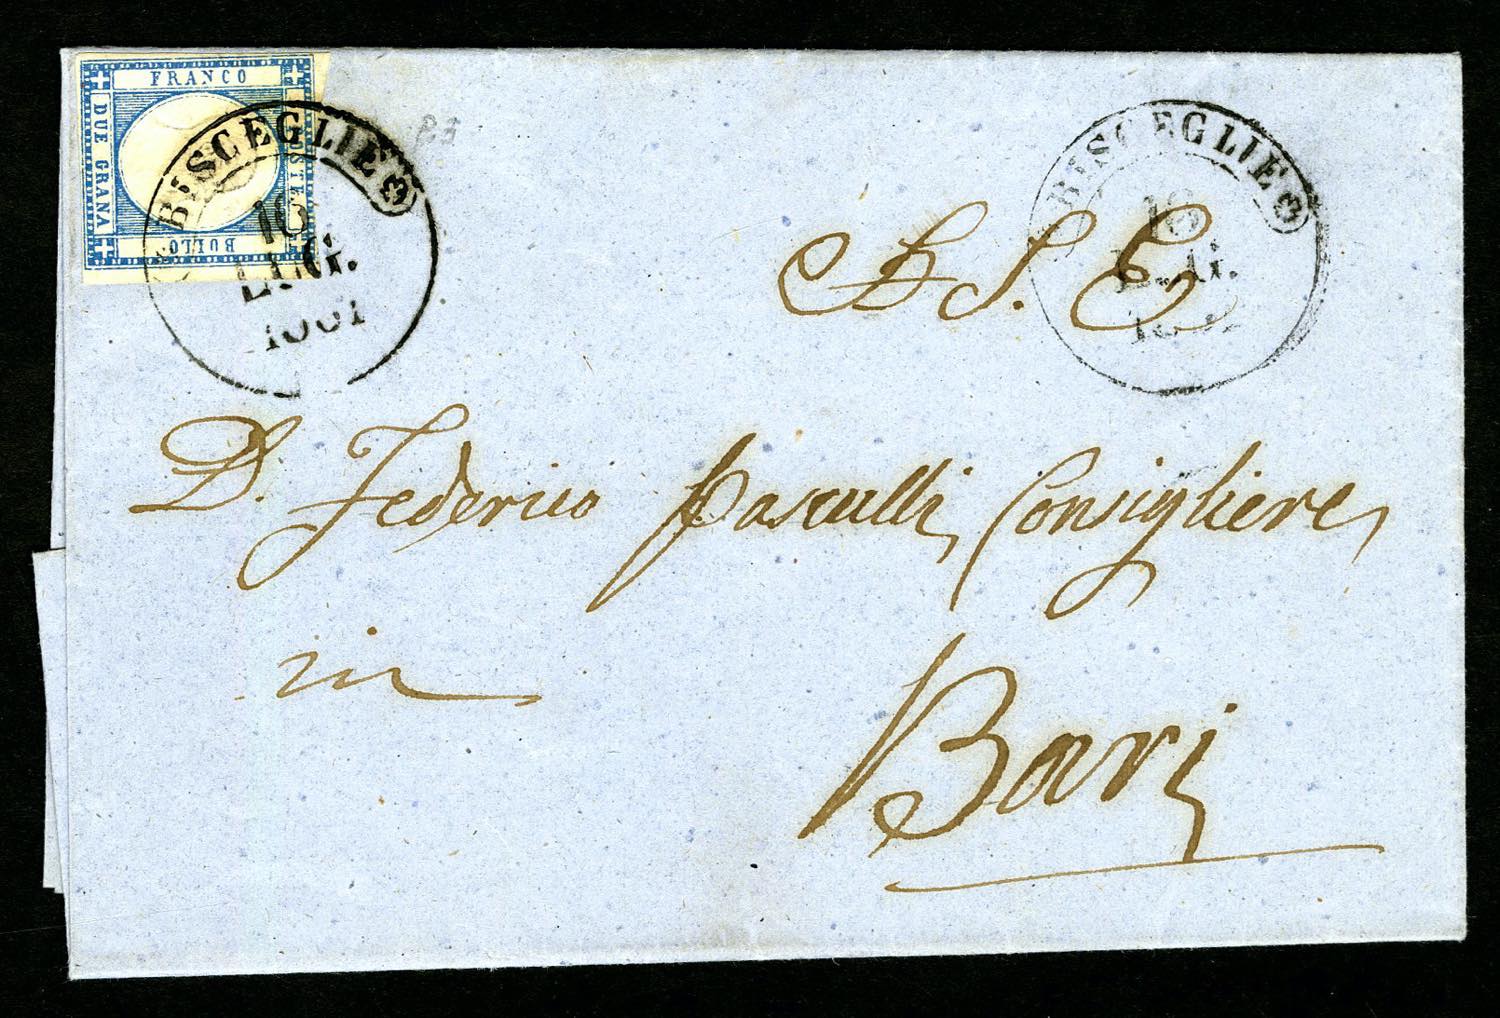 FRANCO
DUE GRANA
POSTE
BOLLO
BISCEGLIE
18
LUG.
1861
BISCEGLIE
18
LUG.
23
A S. E.
D. Federico Pasculli, Consigliere,
in
Bari